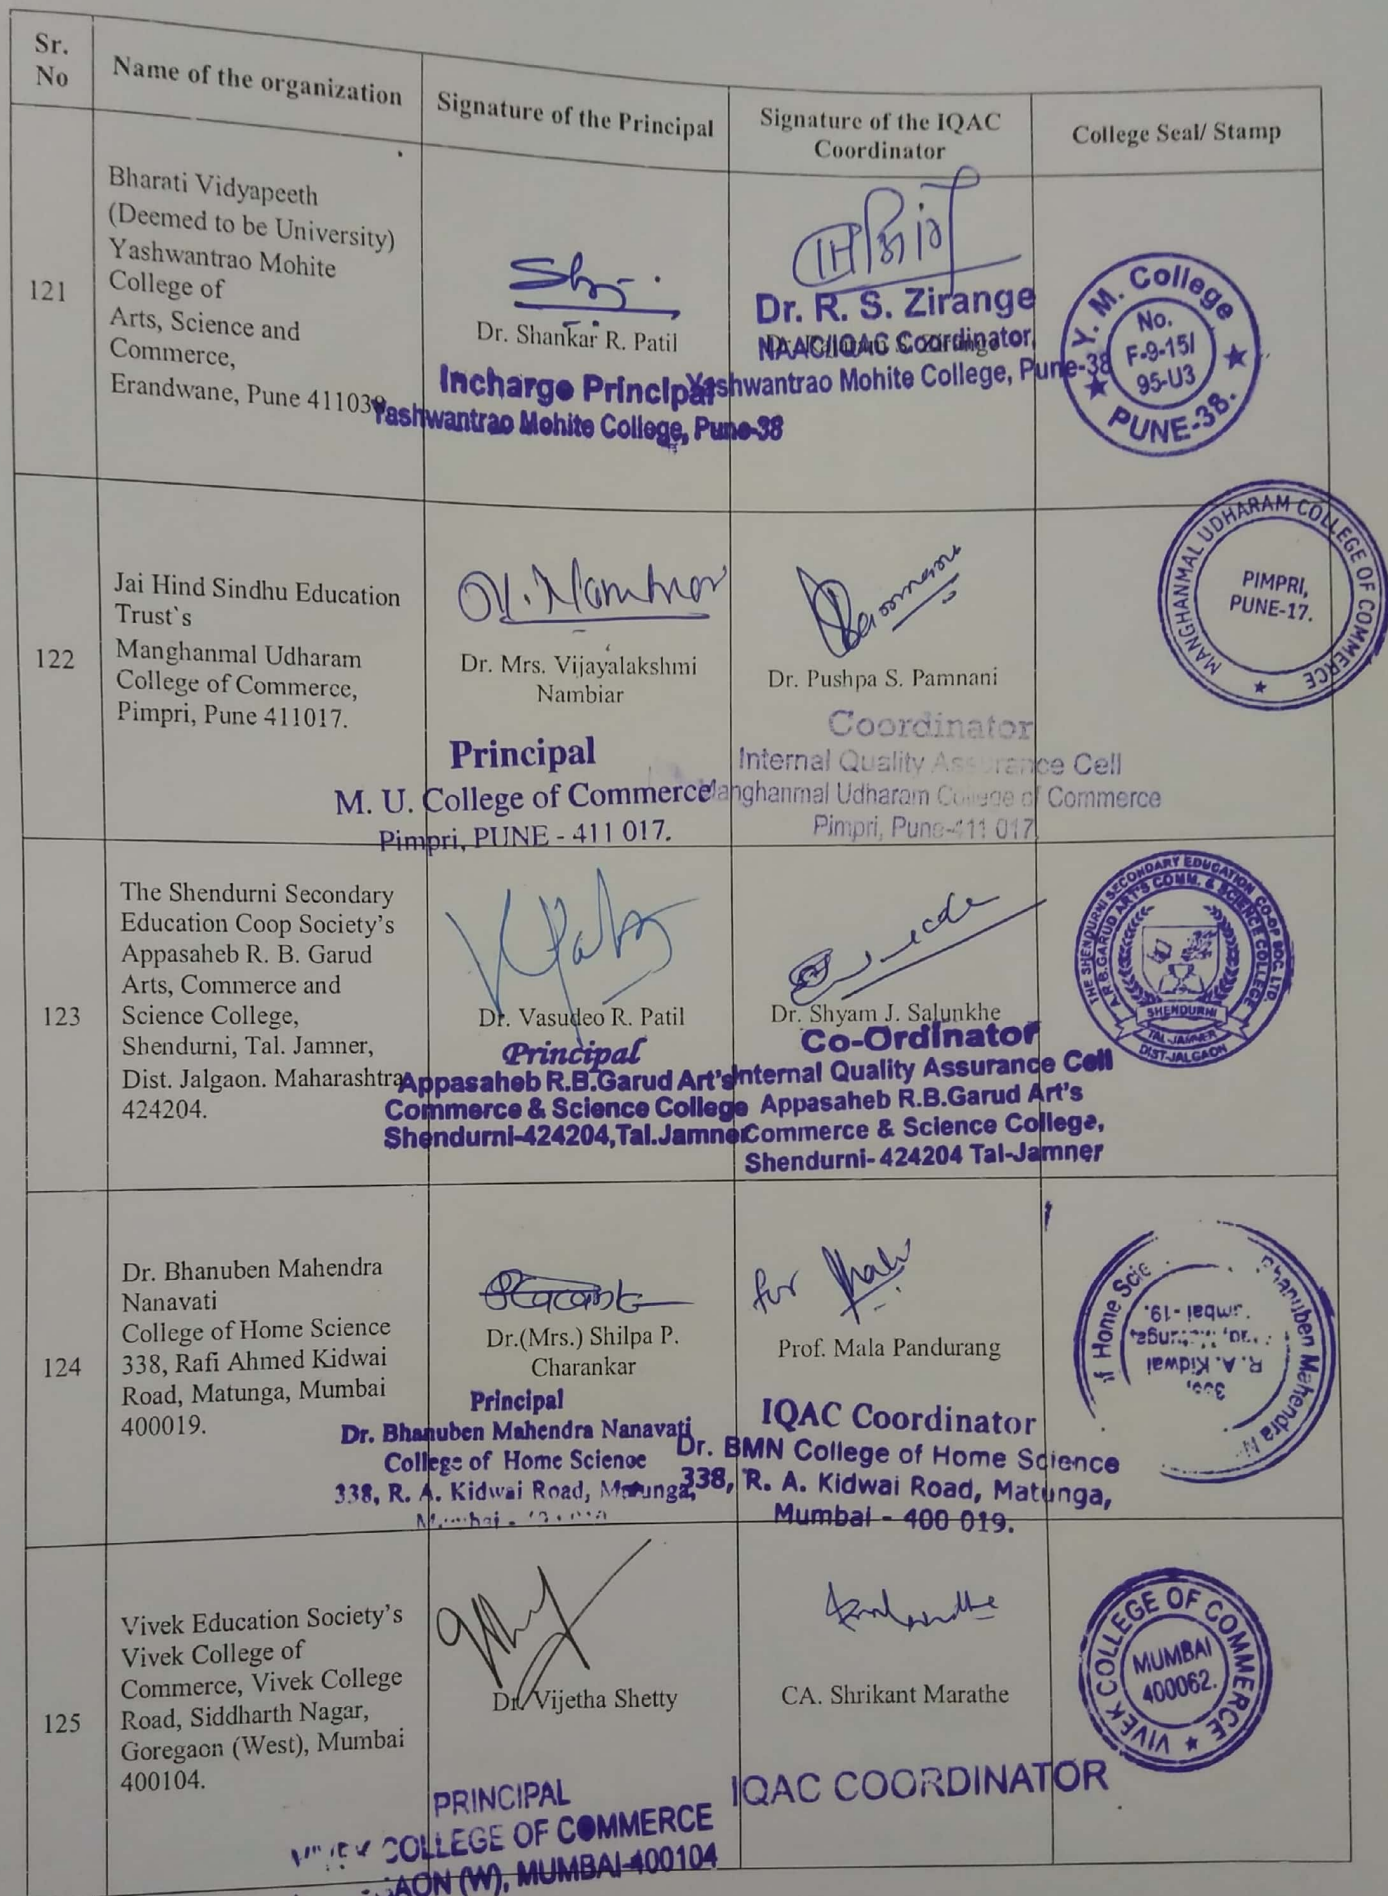 Sr.
No
Name of the organization
Signature of the Principal
Signature of the IQAC
Coordinator
College Seal/ Stamp
121
Bharati Vidyapeeth
(Deemed to be University)
Yashwantrao Mohite
College of
Arts, Science and
Commerce,
Erandwane, Pune 411038
Dr. Shankar R. Patil
Incharge Principal
Yashwantrao Mohite College, Pune-38
Dr. R. S. Zirange
NAAC/IQAC Coordinator
Yashwantrao Mohite College, Pune-38
Y. M. College
No.
F-9-15/
95-U3
PUNE-38.
122
Jai Hind Sindhu Education
Trust`s
Manghanmal Udharam
College of Commerce,
Pimpri, Pune 411017.
Dr. Mrs. Vijayalakshmi
Nambiar
Principal
M. U. College of Commerce
Pimpri, PUNE - 411 017.
Dr. Pushpa S. Pamnani
Coordinator
Internal Quality Assurance Cell
Manghanmal Udharam College of Commerce
Pimpri, Pune-411 017.
MANGHANMAL UDHARAM COLLEGE OF COMMERCE
PIMPRI,
PUNE-17.
123
The Shendurni Secondary
Education Coop Society’s
Appasaheb R. B. Garud
Arts, Commerce and
Science College,
Shendurni, Tal. Jamner,
Dist. Jalgaon. Maharashtra
424204.
Dr. Vasudeo R. Patil
Principal
Appasaheb R.B.Garud Art's
Commerce & Science College
Shendurni-424204,Tal.Jamner
Dr. Shyam J. Salunkhe
Co-Ordinator
Internal Quality Assurance Cell
Appasaheb R.B.Garud Art's
Commerce & Science College,
Shendurni- 424204 Tal-Jamner
THE SHENDURNI SECONDARY EDUCATION CO-OP SOC. LTD.
A.R.B.GARUD ART'S COMM. & SCIENCE COLLEGE
SHENDURNI
TAL-JAMNER
DIST-JALGAON
124
Dr. Bhanuben Mahendra
Nanavati
College of Home Science
338, Rafi Ahmed Kidwai
Road, Matunga, Mumbai
400019.
Dr.(Mrs.) Shilpa P.
Charankar
Principal
Dr. Bhanuben Mahendra Nanavati
College of Home Science
338, R. A. Kidwai Road, Matunga,
for
Prof. Mala Pandurang
IQAC Coordinator
Dr. BMN College of Home Science
338, R. A. Kidwai Road, Matunga,
Mumbai - 400 019.
Bhanuben Mahendra
Home Scie
R. A. Kidwai
125
Vivek Education Society’s
Vivek College of
Commerce, Vivek College
Road, Siddharth Nagar,
Goregaon (West), Mumbai
400104.
Dr. Vijetha Shetty
PRINCIPAL
COLLEGE OF COMMERCE
(W), MUMBAI-400104
CA. Shrikant Marathe
IQAC COORDINATOR
VIVEK COLLEGE OF COMMERCE
MUMBAI
400062.